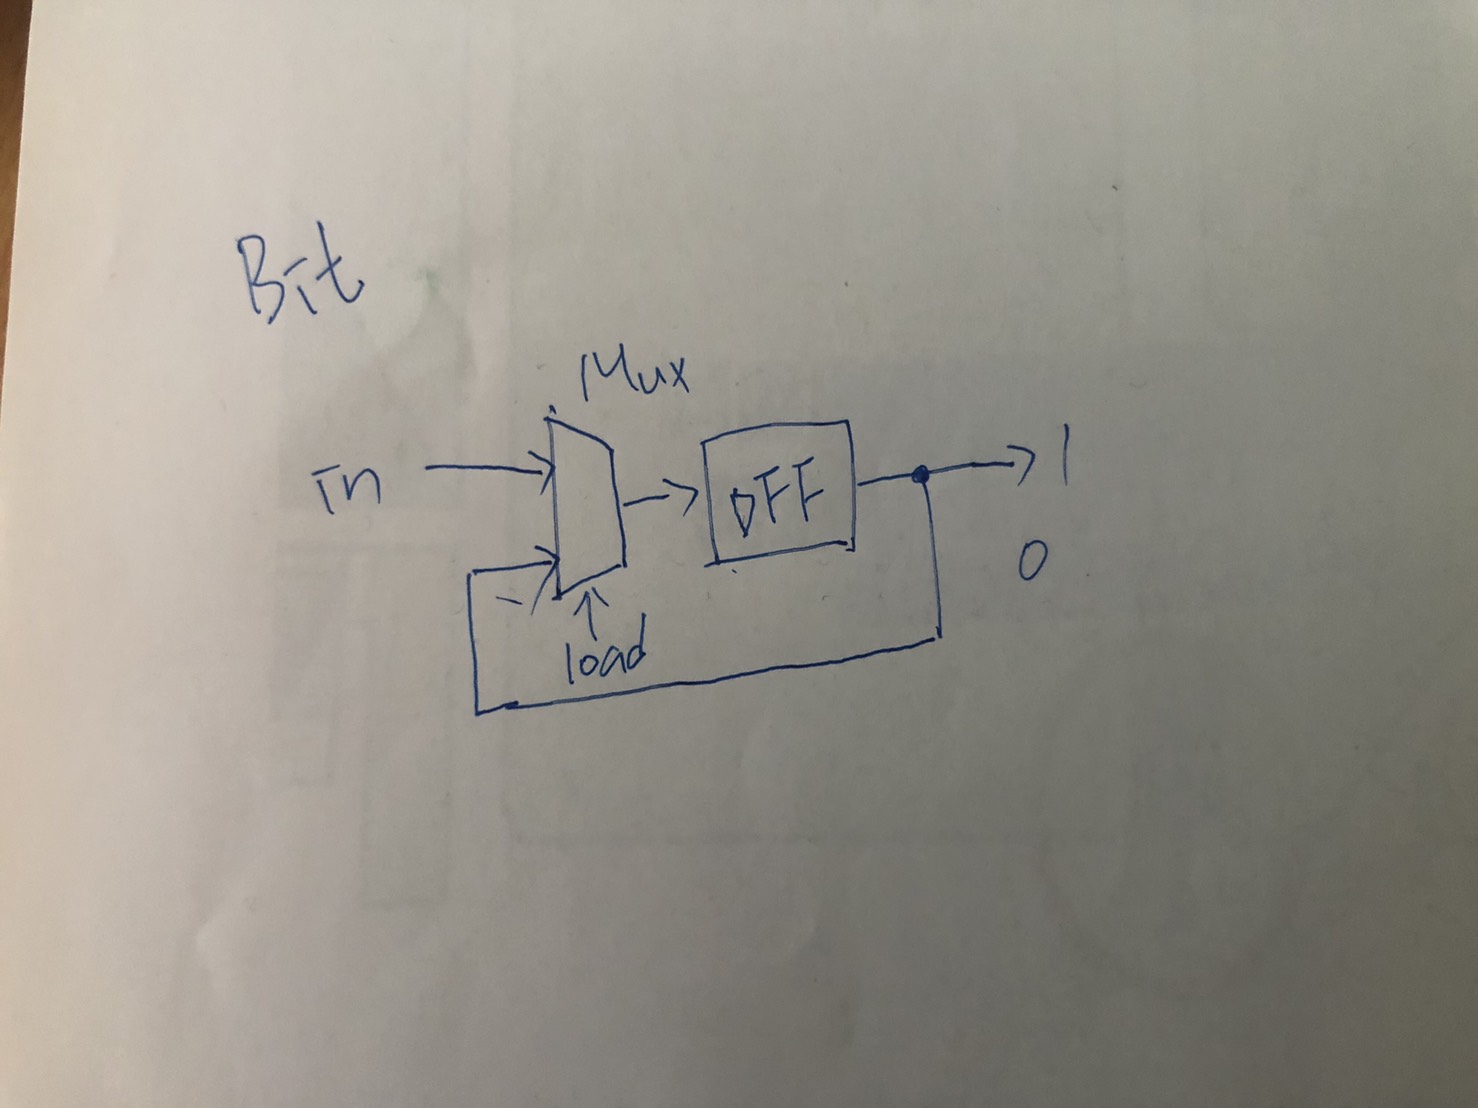 Bit
Mux
in
DFF
1
0
load